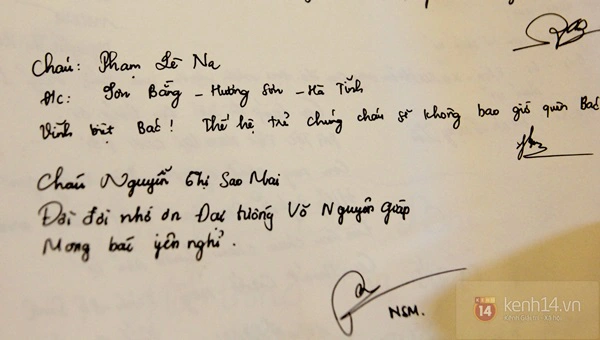 Cháu: Phạm Lê Na
Đ/c: Sơn Bằng - Hương Sơn - Hà Tĩnh
Vĩnh biệt Bác! Thế hệ trẻ chúng cháu sẽ không bao giờ quên Bác
Cháu Nguyễn Thị Sao Mai
Đời đời nhớ ơn Đại tướng Võ Nguyên Giáp
Mong bác yên nghỉ.
NSM.
KENH 14
kenh14.vn